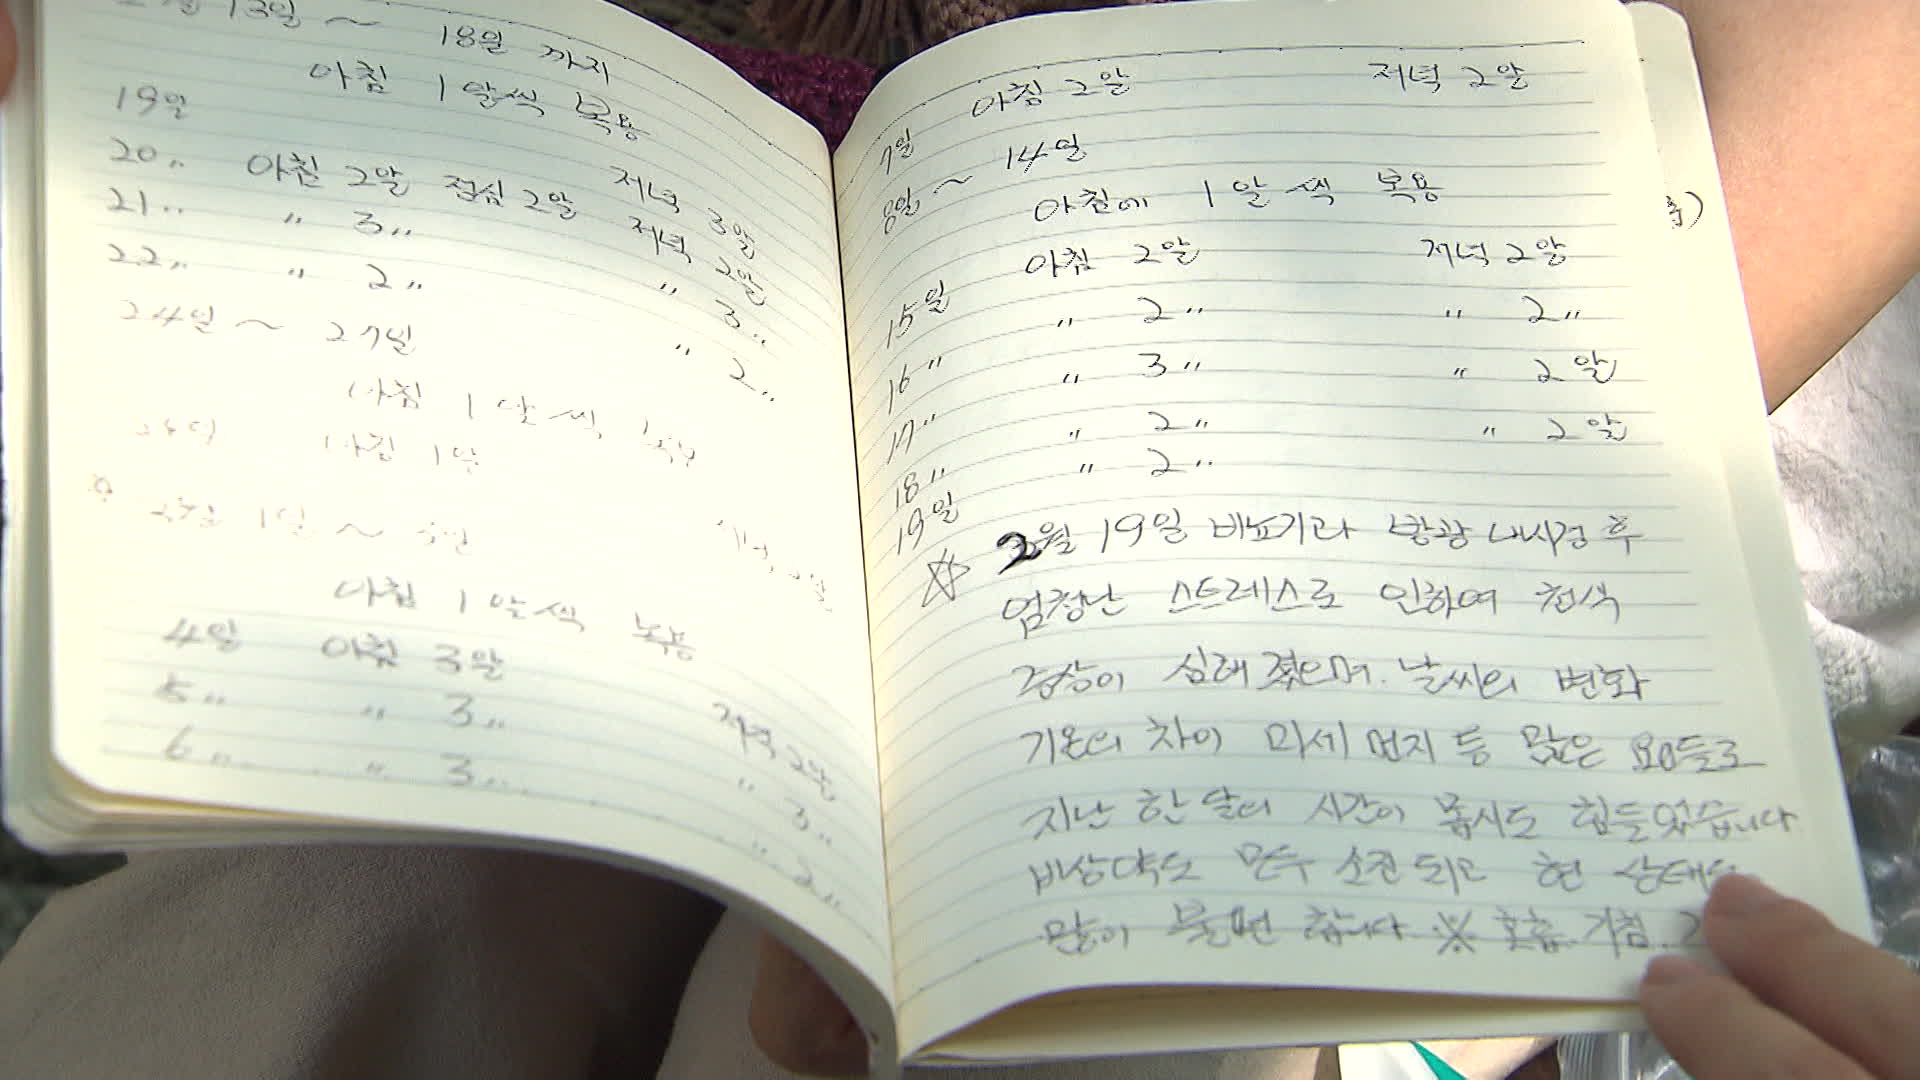 13일 ~ 18일 까지
아침 1알씩 복용
19일
20〃 아침 2알 점심 2알 저녁 3알
21〃 〃 3〃 저녁 2알
22〃 〃 2〃 〃 3〃
〃 2〃
24일 ~ 27일
아침 1알씩
아침 1알
1일 ~
아침 1알씩 복용
4일 아침 3알 저녁 2알
5〃 〃 3〃 〃 3〃
6〃 〃 3〃 〃 2〃
7일 아침 2알 저녁 2알
8일 ~ 14일
아침에 1알씩 복용
15일 아침 2알 저녁 2알
16〃 〃 2〃 〃 2〃
17〃 〃 3〃 〃 2알
18〃 〃 2〃 〃 2알
19일 〃 2〃
☆ 2월 19일 비뇨기과 방광 내시경 후
엄청난 스트레스로 인하여 천식
증상이 심해 졌으며. 날씨의 변화
기온의 차이 미세 먼지 등 많은 요인들로
지난 한 달의 시간이 몹시도 힘들었습니다
비상약도 모두 소진 되고 현 상태는
많이 불편 합니다 ※ 호흡. 기침.